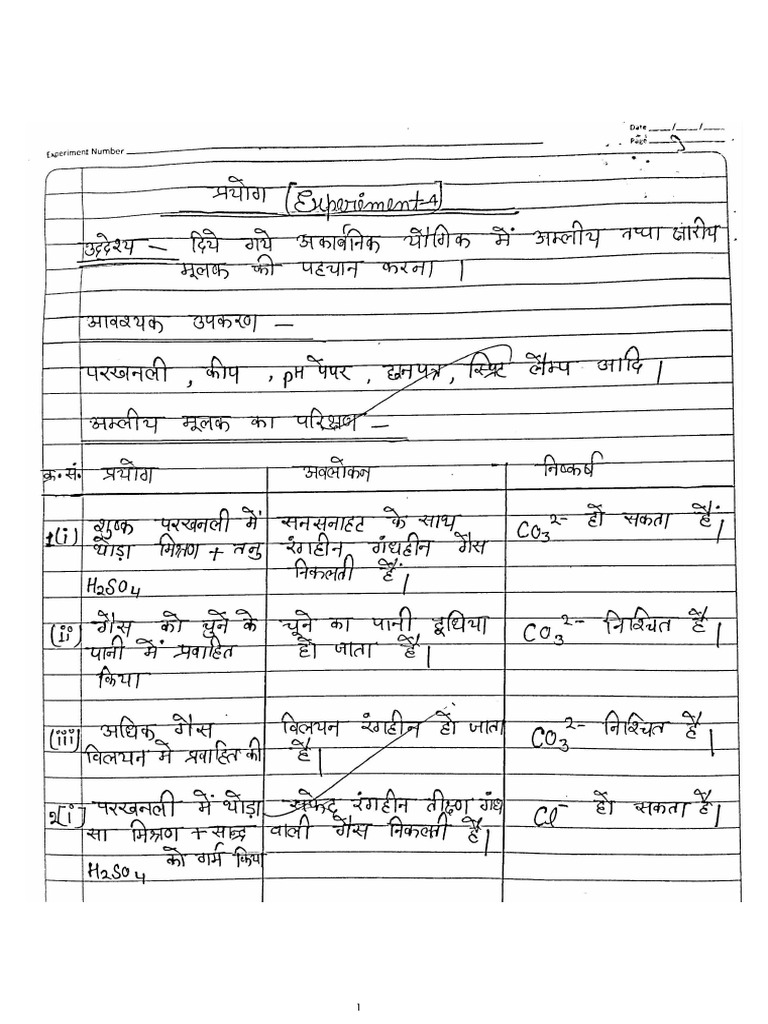 Date ___/___/___
Experiment Number
Page 9
प्रयोग [Experiment-4]
उद्देश्य – दिये गये अकार्बनिक यौगिक में अम्लीय तथा क्षारीय
मूलक की पहचान करना |
आवश्यक उपकरण –
परखनली , कीप , pH पेपर , छनपत्र , स्प्रिट लैम्प आदि |
अम्लीय मूलक का परिक्षण –
क्र.सं. प्रयोग अवलोकन निष्कर्ष
1(i) शुष्क परखनली में सनसनाहट के साथ CO₃²⁻ हो सकता हैं |
थोड़ा मिश्रण + तनु रंगहीन गंधहीन गैस
H₂SO₄ निकलती हैं |
(ii) गैस को चुनें के चूने का पानी दूधिया CO₃²⁻ निश्चित है |
पानी में प्रवाहित हो जाता है |
किया
(iii) अधिक गैस विलयन रंगहीन हो जाता CO₃²⁻ निश्चित है |
विलयन मे प्रवाहित की है |
2(i) परखनली में थोड़ा रंगहीन तीक्ष्ण गंध Cl⁻ हो सकता है |
सा मिश्रण + सान्द्र वाली गैस निकलती है |
H₂SO₄ को गर्म किया
1